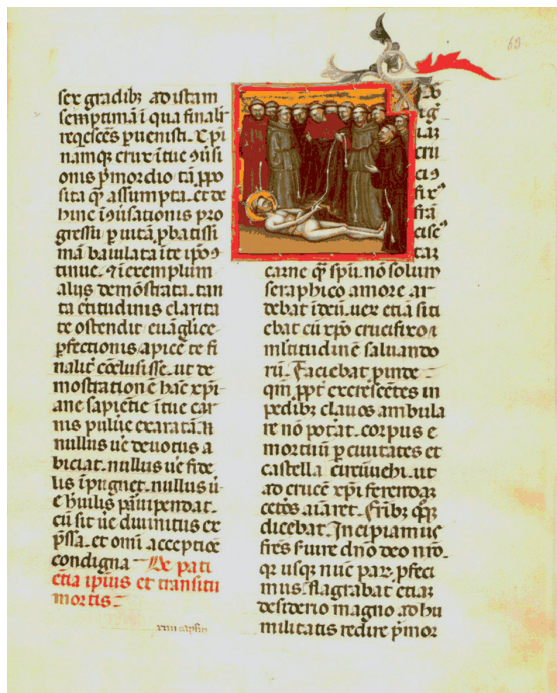 sex gradibꝫ ad istam
septimam ī qua finalr̄
reqesces ꝑuenisti. Xpi
namque crux ī tue ꝯuͥsi
onis pͥmordio tā ꝓpo
sita qͣ assumpta. et de
hinc ī ꝯuͥsationis pro
gressu ꝑ uitā ꝓbatissi
mā baiulata ī te ipō ꝯ
tinue. ⁊ ī exemplum
alijs demōstrata. tan
ta c̄titudinis clarita
te ostendit euāglice
ꝑfectionis apicē te fi
nalit̄ cōclusisse. ut de
mostrationē hāc xp̄i
ane sapientie ī tue car
nis puluͥe exaratā.
nullus uͥe deuotus a
biciat. nullus uͥe fide
lis īpugnet. nullus uͥ
e hūilis paruipendat.
cū sit uͥe diuinitus ex
pssa. et omī acceptiōe
condigna De pati
ētia ipius et transitu
mortis
69
carne qͣ spū. nō solum
seraphico amore ar
debat ī deū. uerͫ etiā siti
ebat cū xpō crucifixo
ml̄titudinē saluando
rū. Faciebat ꝓinde
qm̄ ꝓpt̄ excrescētes in
pedibꝫ clauos ambula
re nō potat. corpus e
mortuū ꝑ ciuitates et
castella circūuehi. ut
ad crucē xpi ferendaꝫ
cet̄os aīaret. Frībꝫ qͦqꝫ
dicebat. Incipiamꝰ
frēs ſuire dn̄o deo nrō.
qꝛ usqꝫ nūc paꝝ ꝓfeci
mus. Flagrabat etiaꝫ
desiderio magno ad hu
militatis redire pͥmor